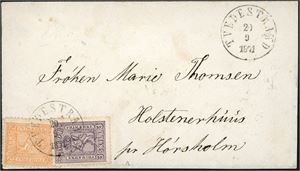 TVEDESTRAND
20
9
1871
Fröken Marie Thomsen
Holstenerhuus
pr Hörsholm
TVEDESTRA